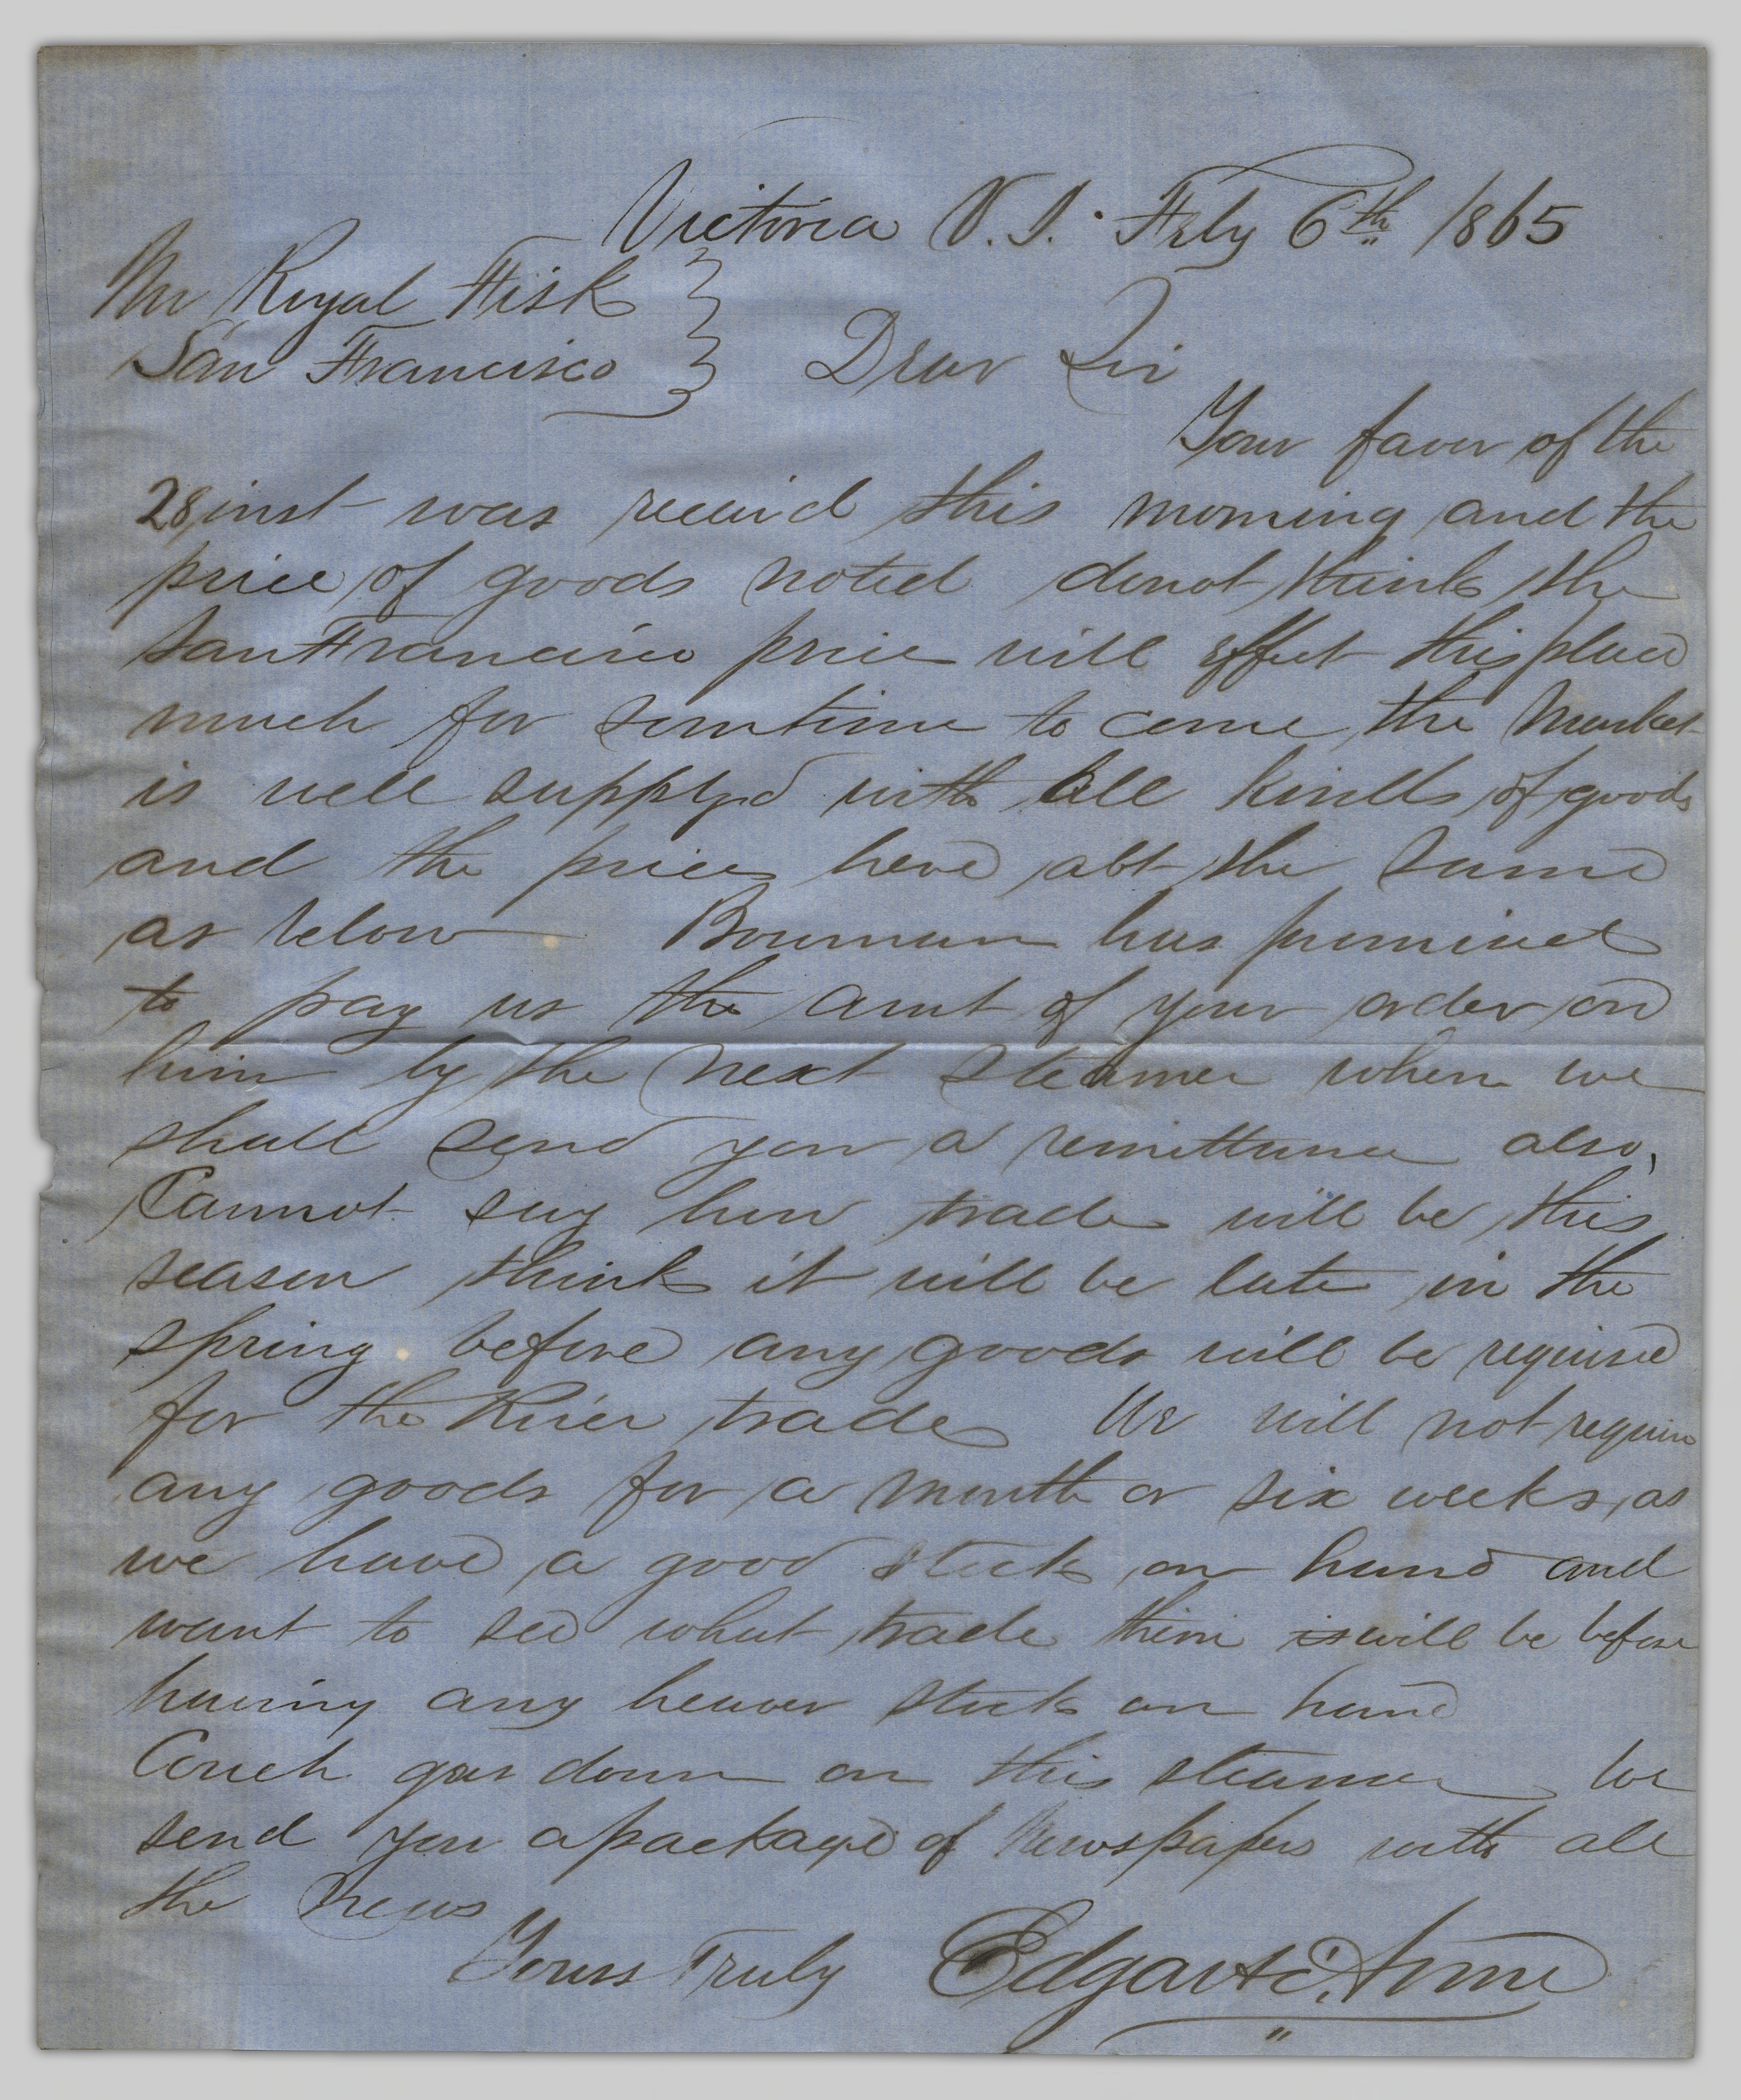 Victoria V. I. Feby 6th 1865
Mr Royal Fisk
San Francisco } Dear Sir
Your favor of the
28 inst was receivd this morning and the
price of goods noted donot think the
San Francisco price will effect this place
much for somtime to come, the Market
is well supplyd with all kinds of goods
and the prices here abt the same
as below Bowman has promised
to pay us the amt of your order on
him by the next steamer when we
shall send you a remittance also,
Cannot say how trade will be this
season think it will be late in the
spring before any goods will be required
for the River trade We will not require
any goods for a month or six weeks, as
we have a good stock on hand and
want to see what trade their is will be before
having any heaver stock on hand
Couch goes down on this steamer We
send you a package of Newspapers with all
the News
Yours Truly Edgar &